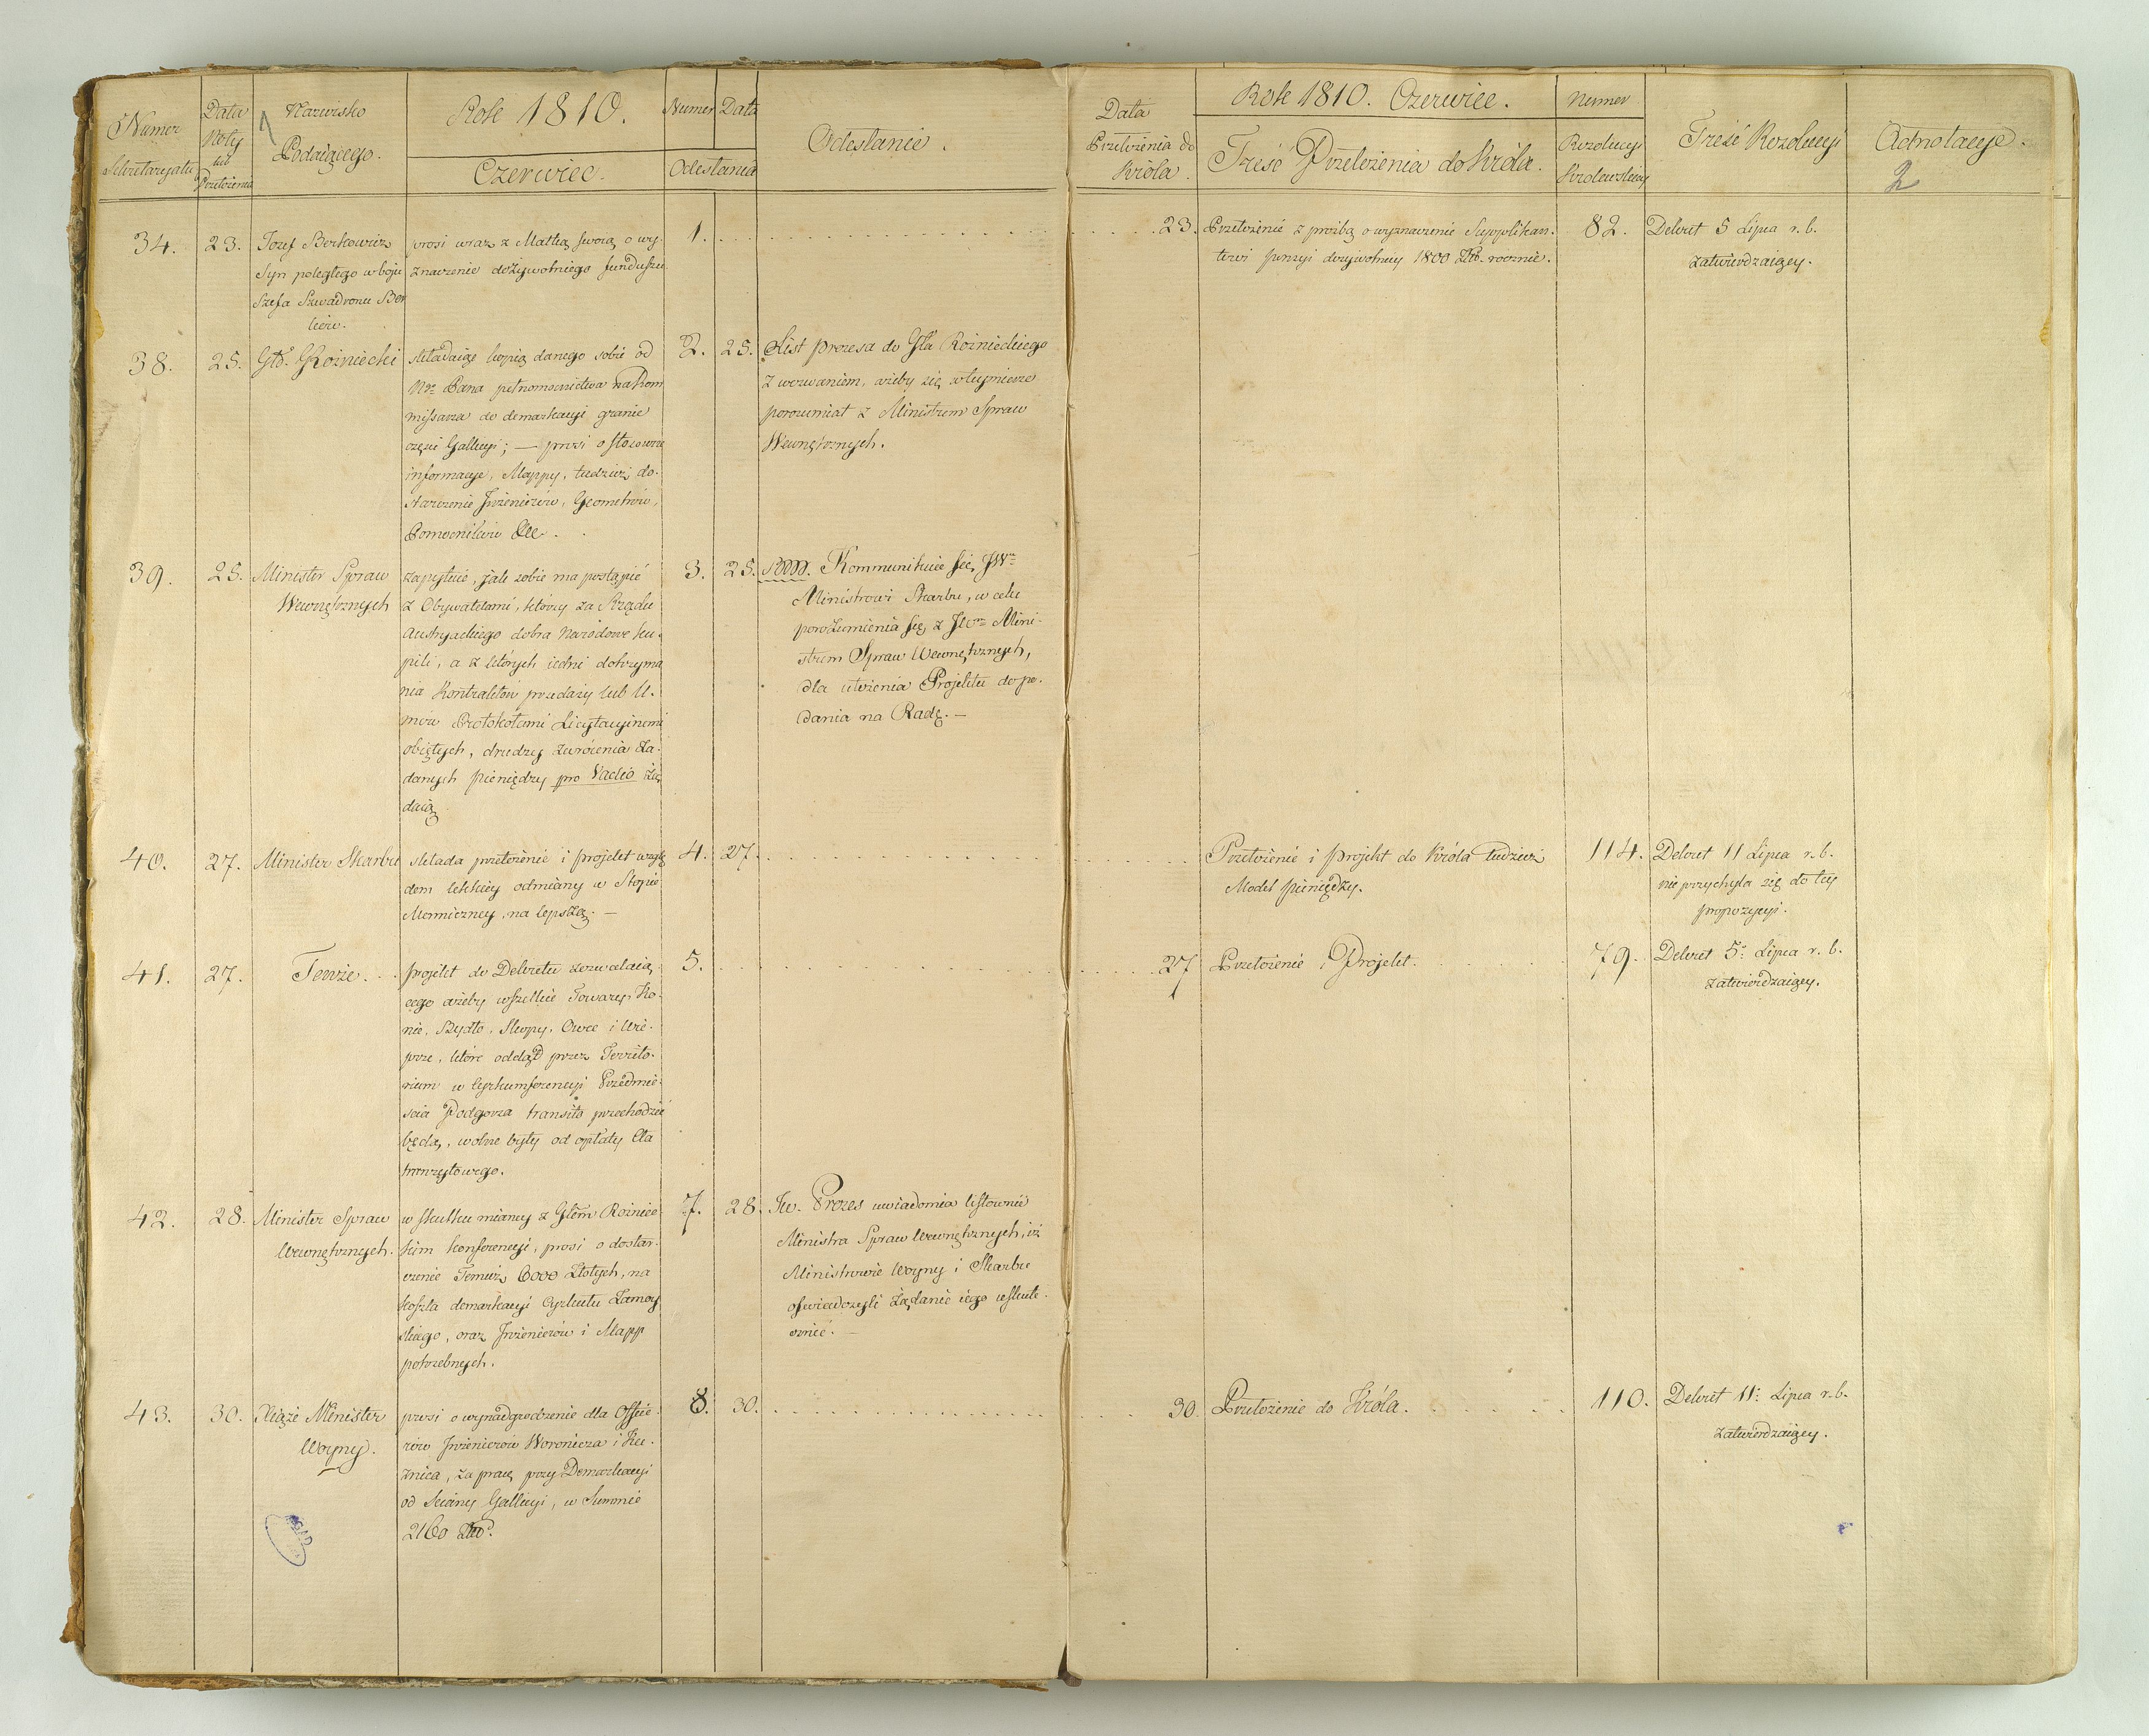 Numer
Sekretaryatu
Data
Noty
lub
Przełożenia
1
Nazwisko
Podaiącego.
Rok 1810.
Czerwiec.
Numer Data
Odesłania
Odesłanie.
Data
Przełożenia do
Króla.
Rok 1810. Czerwiec.
Treść Przełożenia do Króla.
Numer
Rezolucyi
Królewskiey
Treść Rezolucyi
Adnotacye.
2
34.
23.
Jozef Berkowicz
Syn poległego w boju
Szefa Szwadronu Ber
ków.
prosi wraz z Matką swoią o wy-
znaczenie dożywotniego funduszu
1.
23.
Przełożenié z proźbą o wyznaczenie Supplikan-
towi pensyi dożywotniey 1800 Złp. rocznie.
82.
Dekret 5 Lipca r. b.
zatwierdzaiący.
38.
25.
Gł. Rożniecki
składaiąc kopią danego sobie od
Ngo Pana pełnomocnictwa na Kom
missarza do demarkacyi granic
części Gallicyi; — prosi o stosowne
informacye, Mappy, tudzież do-
starczenie Inżenierów, Geometrów,
Pomocników &c.
2.
25.
List prezesa do Gła Rożnieckiego
z wezwaniem, ażeby się w tey mierze
porozumiał z Ministrem Spraw
Wewnętrznych.
39.
25.
Minister Spraw
Wewnętrznych
zapytuie, jak sobie ma postąpić
z Obywatelami, którzy za Rządu
Austryackiego dobra Narodowe ku-
pili, a z których iedni dotrzyma
nia Kontraktów przedaży lub U-
mów Protokołami Licytacyinemi
obiętych, drudzy zwrócenia za-
danych pieniędzy pro Vadio żą
daią
3.
25.
Kommunikuie się JW.
Ministrowi Skarbu, w celu
porozumienia się z JW. Mini-
strem Spraw Wewnętrznych,
dla ułożenia Projektu do po-
dania na Radę. —
40.
27.
Minister Skarbu
składa przełożenie i projekt wzglę
dem lekkiey odmiany w Stopie
Menniczney, na lepszą. —
4.
27.
Przełożenié i projekt do Króla tudzież
Model pieniędzy.
114.
Dekret 11 Lipca r. b.
nie przychyla się do tey
propozycyi.
41.
27.
Tenże.
projekt do Dekretu zezwalaią-
cego ażeby wszelkie Towary, Ko-
nie, Bydło, Skopy, Owce i Wie-
prze, które odtąd przez Territo-
rium w cyrkumferencyi Przedmie-
scia Podgorza transito przechodzić
będą, wolne były od opłaty Cła
tranzytowego.
5.
27
Przełożenié i Projekt.
79.
Dekret 5. Lipca r. b.
zatwierdzaiący.
42.
28.
Minister Spraw
Wewnętrznych.
w skutku mianey z Głem Rożniec
kim konferencyi, prosi o dostar-
czenie Temuż 6000 Złotych, na
koszta demarkacyi Cyrkułu Zamoy
skiego, oraz Inżenierów i Mapp
potrzebnych.
7.
28.
Jw. Prezes uwiadomia listownie
Ministra Spraw Wewnętrznych, iż
Ministrowie Woyny i Skarbu
oświadczyli żądanie iego uskute-
cznić. —
43.
30.
Xiąże Minister
Woyny.
prosi o wynadgrodzenie dla Offic-
rów Inżenierów Woronicza i Ku-
znica, za pracę przy Demarkacyi
od Sciany Gallicyi, w Summie
2160 Złp.
8.
30.
30.
Przełożenie do Króla.
110.
Dekret 11. Lipca r. b.
zatwierdzaiący.
AGAD